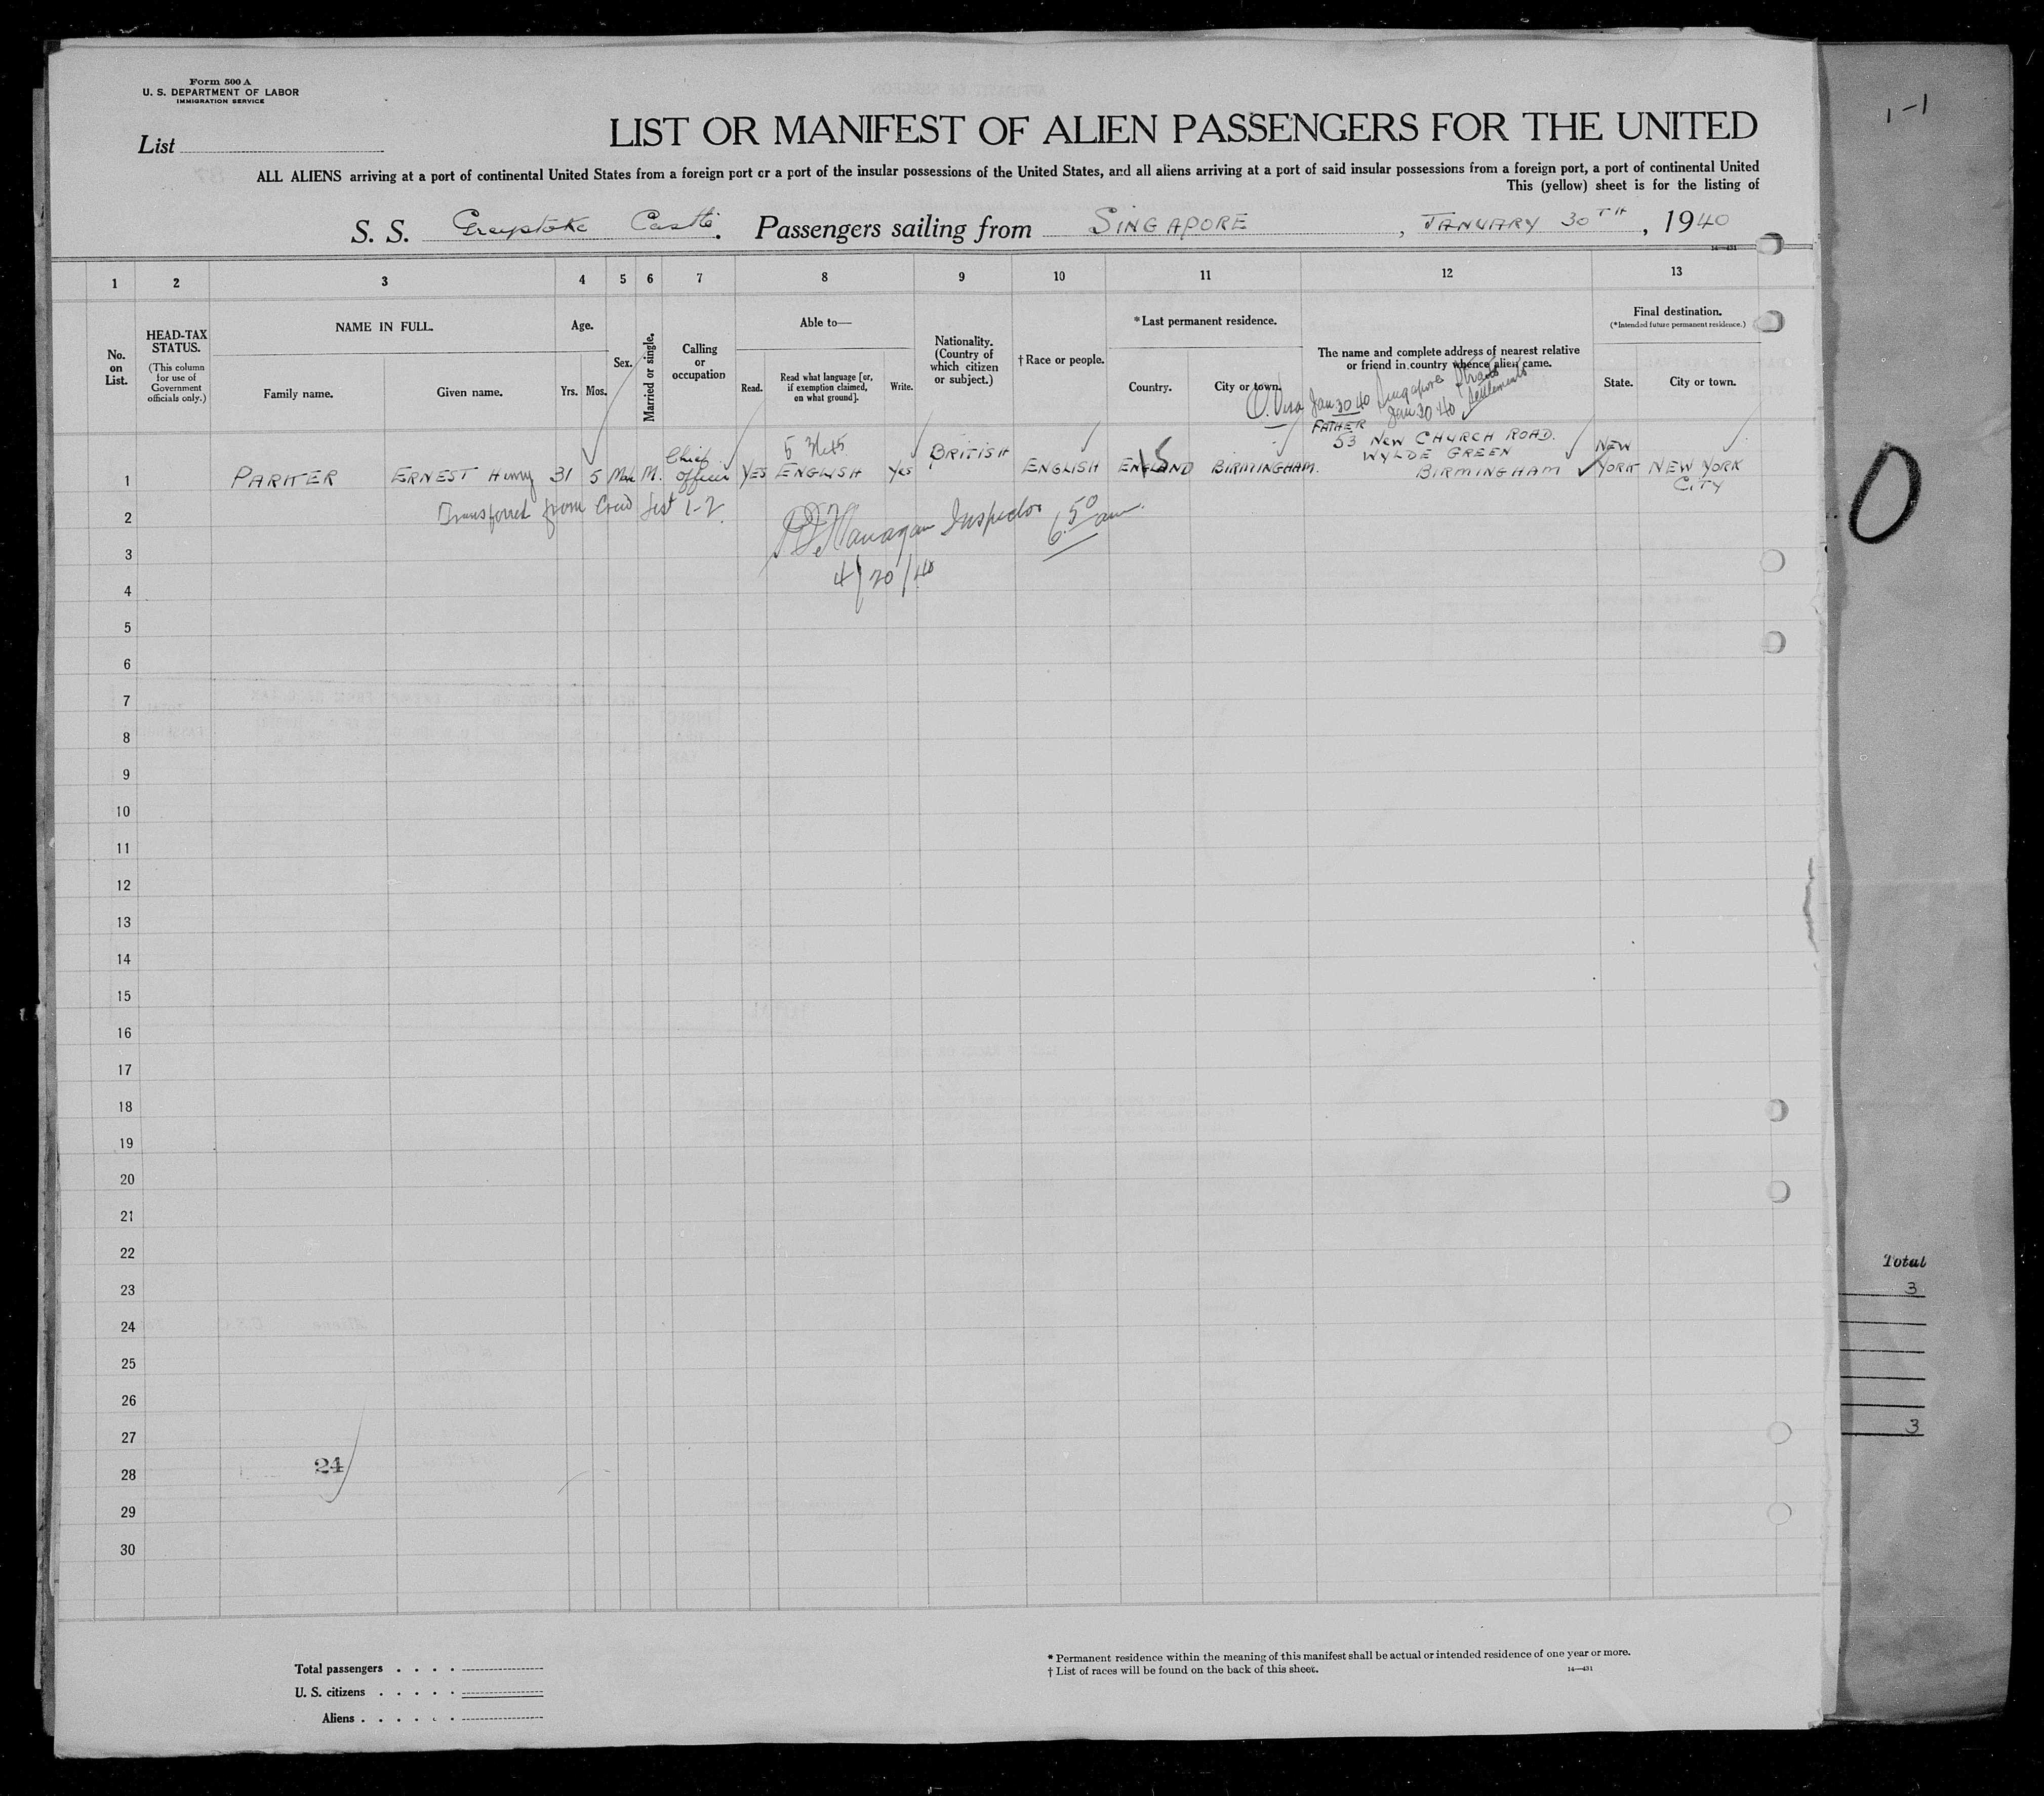 Form 500 A
U. S. DEPARTMENT OF LABOR
IMMIGRATION SERVICE
List
LIST OR MANIFEST OF ALIEN PASSENGERS FOR THE UNITED
ALL ALIENS arriving at a port of continental United States from a foreign port or a port of the insular possessions of the United States, and all aliens arriving at a port of said insular possessions from a foreign port, a port of continental United
This (yellow) sheet is for the listing of
S. S. Greystoke Castle. Passengers sailing from SINGAPORE, JANUARY 30TH, 1940
14—431
1 2 3 4 5 6 7 8 9 10 11 12 13
No. on List.
HEAD-TAX STATUS.
(This column for use of Government officials only.)
NAME IN FULL.
Family name.
Given name.
Age.
Yrs. Mos.
Sex.
Married or single.
Calling or occupation
Able to—
Read.
Read what language [or, if exemption claimed, on what ground].
Write.
Nationality. (Country of which citizen or subject.)
† Race or people.
* Last permanent residence.
Country.
City or town.
The name and complete address of nearest relative or friend in country whence alien came.
Final destination.
(*Intended future permanent residence.)
State.
City or town.
Visa Jan 30 40 Singapore Straits Settlements
Jan 30 40
1 PARITER ERNEST Henry 31 5 Male M. Chief Officer YES ENGLISH Yes BRITISH ENGLISH ENGLAND BIRMINGHAM. FATHER
53 NEW CHURCH ROAD.
WYLDE GREEN
BIRMINGHAM NEW YORK NEW YORK CITY
Transferred from Crew List 1-2.
Inspector 6 50 am.
4/20/40
2
3
4
5
6
7
8
9
10
11
12
13
14
15
16
17
18
19
20
21
22
23
24
25
26
27
28
29
30
24
Total passengers
U. S. citizens
Aliens
* Permanent residence within the meaning of this manifest shall be actual or intended residence of one year or more.
† List of races will be found on the back of this sheet.
14—431
1-1
0
Total
3
3